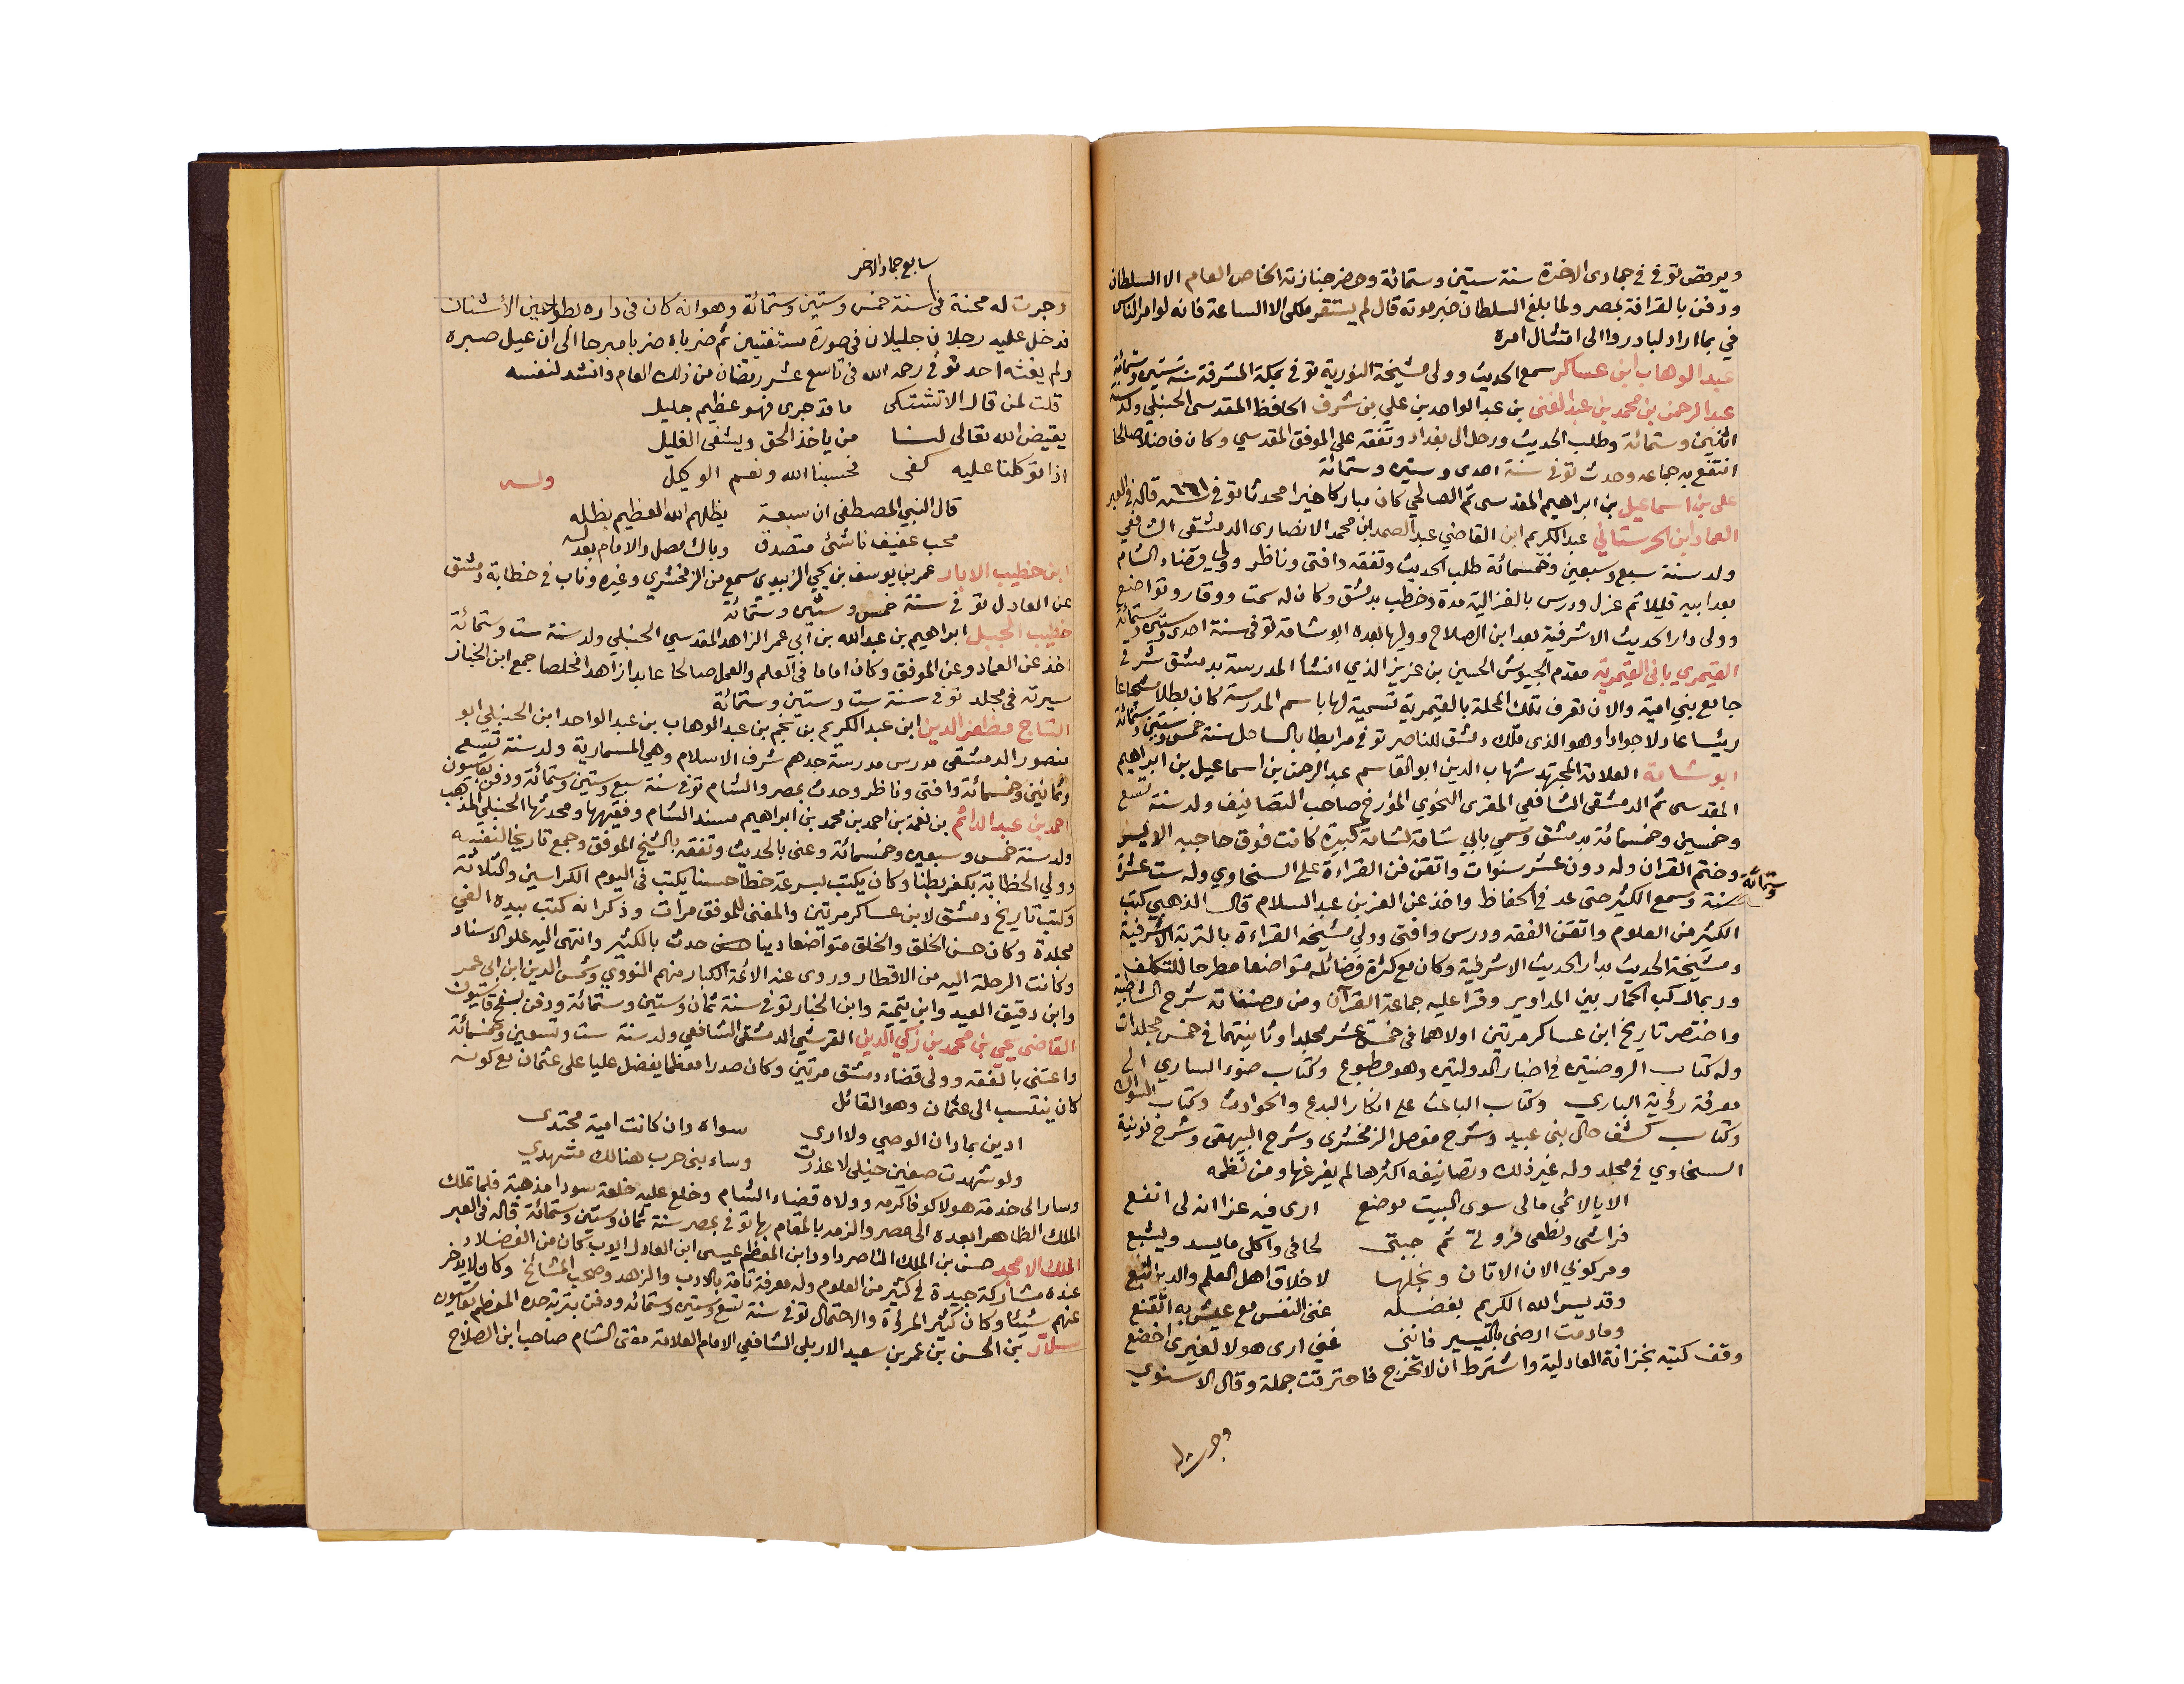 ويرقص توفي في جمادى الاخرة سنة ستين وستمائة وحضر جنازته الخاص العام الا السلطان
ودفن بالقرافة بمصر ولما بلغ السلطان خبر موته قال لم يستقر ملكى الا الساعة فانه لو امر الناس
في بما اراد لبادروا الى امتثال امره
عبد الوهاب ابن عساكر سمع الحديث وولى مشيخة النورية توفي بمكة المشرفة سنة ستين وستمائة
عبد الرحمن بن محمد بن عبد الغنى بن عبد الواحد بن علي بن شرف الحافظ المقدسى الحنبلي ولد سنة
اثنين وستمائة وطلب الحديث ورحل الى بغداد وتفقه على الموفق المقدسي وكان فاضلا صالحا
انتفع به جماعه وحدث توفي سنة احدى وستين وستمائة
على بن اسماعيل بن ابراهيم المقدسى ثم الصالحي كان مباركا خيرا محدثا توفي سنه ٦٦١ قاله في العبر
العماد ابن الحرستاني عبد الكريم ابن القاضي عبد الصمد ابن محمد الانصارى الدمشقى الشافعي
ولد سنة سبع وسبعين وخمسمائة طلب الحديث وتفقه وافتى وناظر وولي قضاء الشام
بعد ابيه قليلا ثم عزل ودرس بالغزالية مدة وخطب بدمشق وكان له سمت ووقار وتواضع
وولى دار الحديث الاشرفية بعد ابن الصلاح ووليها بعده ابو شامة توفى سنة احدى وستين وستمائة
القيمري بانى القيمرية مقدم الجيوش الحسين بن عزيز الذي انشأ المدرسة بدمشق شرقي
جامع بني امية والان تعرف تلك المحلة بالقيمرية تسمية لها باسم المدرسة كان بطلا شجاعا
رئيسا عادلا جوادا وهو الذى ملّك دمشق للناصر توفي مرابطا بالساحل سنة خمس وستين وستمائة
ابو شامة العلامة المجتهد شهاب الدين ابو القاسم عبد الرحمن بن اسماعيل بن ابراهيم
المقدسى ثم الدمشقى الشافعي المقرى النحوي المؤرخ صاحب التصانيف ولد سنة تسع
وخمسين وخمسمائة بدمشق وسمي بابي شامة لشامة كبيرة كانت فوق حاجبه الايسر
وختم القران وله دون عشر سنوات واتقن فن القراءة على السخاوي وله ست عشرة
وستمائة
سنة وسمع الكثير حتى عد في الحفاظ واخذ عن العز بن عبد السلام قال الذهبي كتب
الكثير من العلوم واتقن الفقه ودرس وافتى وولي مشيخه القراءة بالتربة الاشرفية
ومشيخة الحديث بدار الحديث الاشرفية وكان مع كثرة فضائله متواضعا مطرحا للتكلف
وربما ركب الحمار بين المداوير وقرا عليه جماعة القرآن ومن مصنفاته شرح الشاطبية
واختصر تاريخ ابن عساكر مرتين اولاهما فى خمسة عشر مجلدا وثانيتهما في خمس مجلدات
وله كتاب الروضتين في اخبار الدولتين وهو مطبوع وكتاب ضوء السارى الى
معرفة رؤية البارى وكتاب الباعث على انكار البدع والحوادث وكتاب السواك
وكتاب كشف حال بنى عبيد وشرح مفصل الزمخشرى وشرح البيهقى وشرح نونية
السخاوي في مجلد وله غير ذلك وتصانيفه اكثرها لم يفرغها ومن نظمه
الا يا لائمى مالى سوى البيت موضع ارى فيه عزا انه لى انفع
فراشى ونطعى فروتى ثم جبتى لحافى واكلى ما يسد ويشبع
ومركوبي الان الاتان ونجلها لاخلاق اهل العلم والدين اتبع
وقد يسر الله الكريم بفضله غنى النفس مع عيش به اتقنع
وما دمت ارضى باليسير فاننى غني ارى هولا لغيرى اخضع
وقف كتبه بخزانة العادلية واشترط ان لا تخرج فاحترقت جملة وقال الاسنوي
وجرت له
سابع جماد الاخر
وجرت له محنة في سنة خمس وستين وستمائة وهو انه كان فى داره بطواحين الأشنان
فدخل عليه رجلان جليلان فى صورة مستفتيين ثم ضرباه ضربا مبرحا الى ان عيل صبره
ولم يغثه احد توفي رحمه الله فى تاسع عشر رمضان من ذلك العام وانشد لنفسه
قلت لمن قال الا تشتكى ما قد جرى فهو عظيم جليل
يقيض الله تعالى لنا من ياخذ الحق ويشفى الغليل
اذا توكلنا عليه كفى فحسبنا الله ونعم الوكيل وله
قال النبي المصطفى ان سبعة يظلهم الله العظيم بظله
محب عفيف ناشئ متصدق وباك مصل والامام بعدله
ابن خطيب الابار عمر بن يوسف بن يحيي الزبيدي سمع من الزمخشري وغيره وناب في خطابة دمشق
عن العادل توفي سنة خمس وستين وستمائة
خطيب الجبل ابراهيم بن عبد الله بن ابي عمر الزاهد المقدسي الحنبلي ولد سنة ست وستمائة
اخذ عن العماد وعن الموفق وكان اماما في العلم والعمل صالحا عابدا زاهدا مخلصا جمع ابن الخباز
سيرته في مجلد توفي سنة ست وستين وستمائة
التاج مظفر الدين ابن عبد الكريم بن نجم بن عبد الوهاب بن عبد الواحد ابن الحنبلي ابو
منصور الدمشقى مدرس مدرسة جدهم شرف الاسلام وهي المسمارية ولد سنة تسع
وثمانين وخمسمائة وافتى وناظر وحدث بمصر والشام توفي سنة سبع وستين وستمائة ودفن بقاسيون
احمد بن عبد الدائم بن نعمة بن احمد بن محمد بن ابراهيم مسند الشام وفقيهها ومحدثها الحنبلي المذهب
ولد سنة خمس وسبعين وخمسمائة وعنى بالحديث وتفقه بالشيخ الموفق وجمع تاريخا لنفسه
وولي الخطابة بكفر بطنا وكان يكتب بسرعة خطا حسنا يكتب فى اليوم الكراسين والثلاثة
وكتب تاريخ دمشق لابن عساكر مرتين والمغنى للموفق مرات وذكر انه كتب بيده الفي
مجلدة وكان حسن الخلق والخلق متواضعا دينا حدث بالكثير وانتهى اليه علو الاسناد
وكانت الرحلة اليه من الاقطار وروى عنه الائمة الكبار منهم النووي وشمس الدين ابن ابى عمر
وابن دقيق العيد وابن تيمية وابن الخباز توفي سنة ثمان وستين وستمائة ودفن بسفح قاسيون
القاضى يحيى بن محمد بن زكي الدين القرشي الدمشقى الشافعي ولد سنة ست وتسعين وخمسمائة
واعتنى بالفقه وولى قضاء دمشق مرتين وكان صدرا معظما يفضل عليا على عثمان مع كونه
كان ينتسب الى عثمان وهو القائل
ادين بما دان الوصي ولا ارى سواه وان كانت امية محتدى
ولو شهدت صفين خيلى لاعذرت وساء بنى حرب هنالك مشهدي
وسار الى خدمة هولاكو فاكرمه وولاه قضاء الشام وخلع عليه خلعة سودا مذهبة فلما تملك
الملك الظاهر ابعده الى مصر والزمه بالمقام بها توفي بمصر سنة ثمان وستين وستمائة قاله في العبر
الملك الامجد حسن بن الملك الناصر داود ابن المعظم عيسى ابن العادل ايوب كان من الفضلاء
عنده مشاركة جيدة في كثير من العلوم وله معرفة تامة بالادب والزهد وصحب المشائخ وكان لا يدخر
عنهم شيئا وكان كثير المروة والاحتمال توفي سنة تسع وستين وستمائة ودفن بتربة جده المعظم بقاسيون
سلار بن الحسن بن عمر بن سعيد الاربلى الشافعي الامام العلامة مفتى الشام صاحب ابن الصلاح